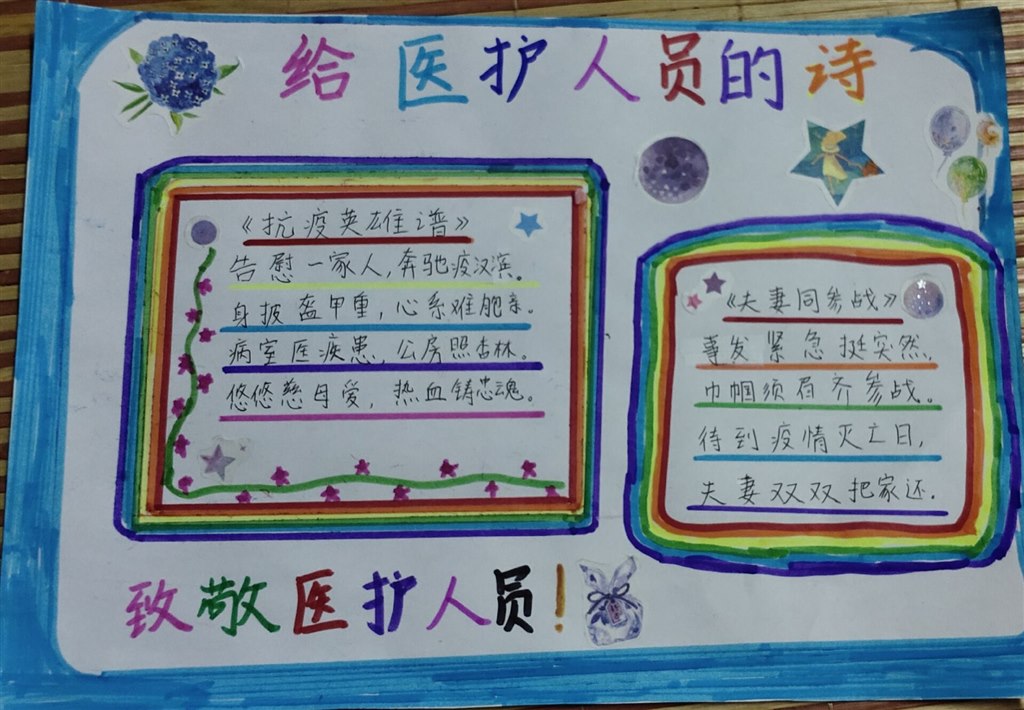 给医护人员的诗
《抗疫英雄谱》
告慰一家人,奔驰疫汉滨。
身披盔甲重,心系难胞亲。
病室医疾患,公房照杏林。
悠悠慈母爱,热血铸忠魂。
《夫妻同参战》
蓦发紧急挺突然,
巾帼须眉齐参战。
待到疫情灭亡日,
夫妻双双把家还.
致敬医护人员!